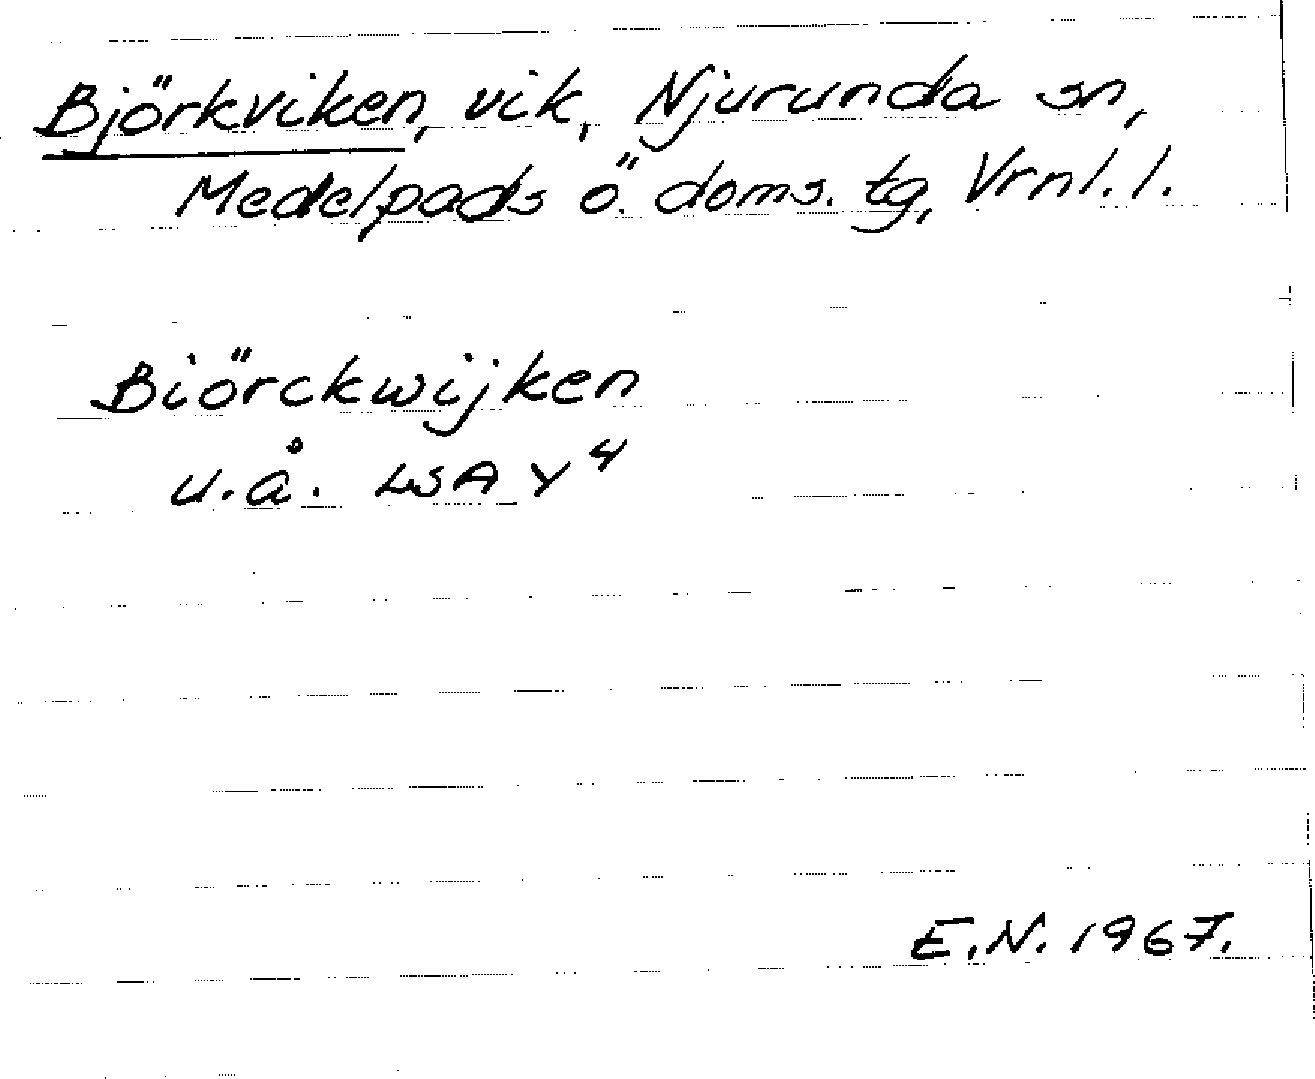 Björkviken, vik, Njurunda sn,
Medelpads ö. doms. tg, Vrnl. l.
Biörckwijken
u.å. LSA Y4
E.N. 1967.